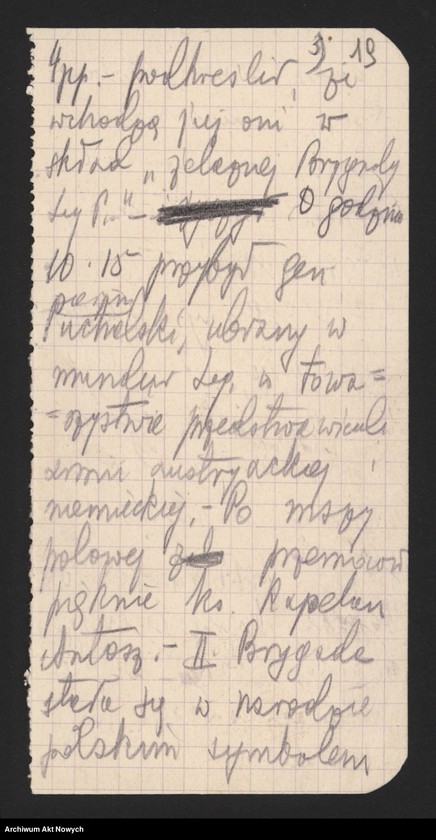 3) 19
4pp. - podkreślił, że
wchodzą już oni w
skład „żelaznej Brygady
Leg P." - O godzinie
10.15 przybył gen
Puchalski, ubrany w
mundur Leg. w towa=
=rzystwie przedstawicieli
armii austryackiej i
niemieckiej. - Po mszy
polowej przemówił
pięknie ks. Kapelan
Antosz. - II. Brygada
stała się w narodzie
polskim symbolem
Archiwum Akt Nowych